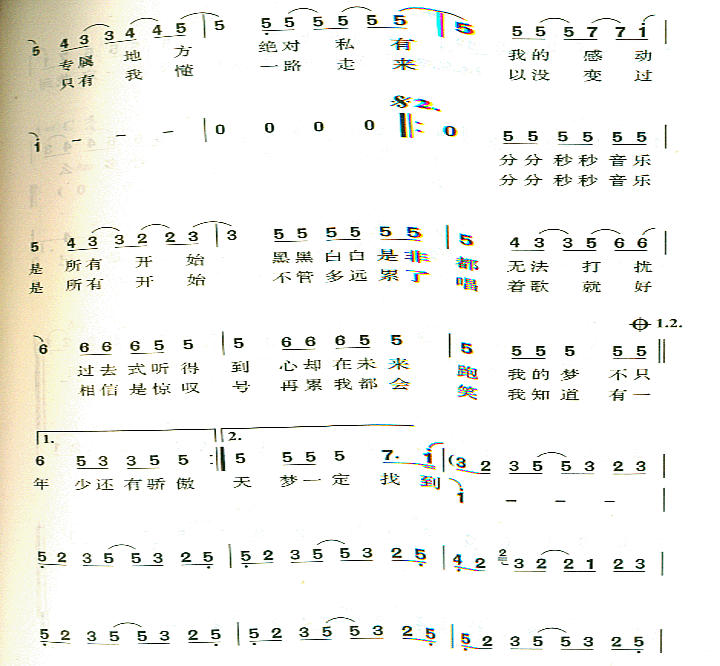 5 4 3 3 4 4 5 | 5 5 5 5 5 5 | 5 5 5 5 7 7 i |
专属 地 方 绝对 私 有 我的 感 动
只有 我 懂 一路 走 来 以没 变 过
2.
i – – – | 0 0 0 0 ‖: 0 5 5 5 5 5 5 |
分分秒秒音乐
分分秒秒音乐
5 4 3 3 2 2 3 | 3 5 5 5 5 5 5 | 5 4 3 3 5 6 6 |
是 所有 开 始 黑黑白白是非 都 无法 打 扰
是 所有 开 始 不管多远累了 唱 着歌 就 好
1.2.
6 6 6 6 5 5 | 5 6 6 6 5 5 | 5 5 5 5 5 5 ‖
过去式听得 到 心却在未来 跑 我的梦 不只
相信是惊叹 号 再累我都会 笑 我知道 有一
1. 2.
6 5 3 3 5 5 :‖ 5 5 5 5 7. i | (3 2 3 5 5 3 2 3 |
年 少还有骄傲 天 梦一定 找到
i – – –
5 2 3 5 5 3 2 5 | 5 2 3 5 5 3 2 5 | 4 2 2 3 2 2 1 2 3 |
5 2 3 5 5 3 2 5 | 5 2 3 5 5 3 2 5 | 5 2 3 5 5 3 2 5 |